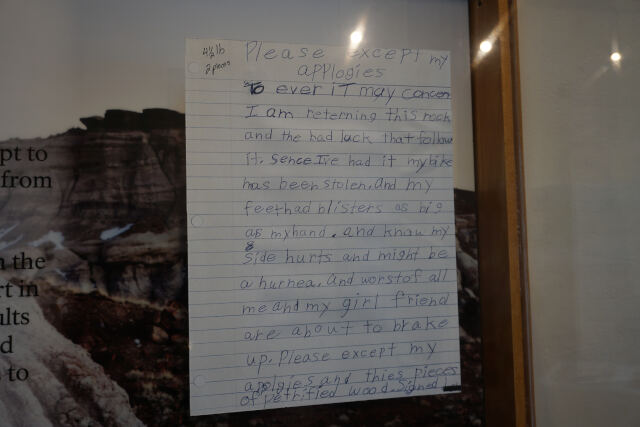 4½ lb
2 pieces
Please except my
applogies
To ever iT may concern
I am reterning this rock
and the bad luck that follow
it. Sence I've had it my bike
has been stolen. and my
feet had blisters as big
as my hand. and know my
side hurts and might be
a hurnea. and worst of all
me and my girl friend
are about to brake
up. Please except my
applgies and thies pieces
of petrified wood. Signed
pt to
from
n the
rt in
ults
d
to